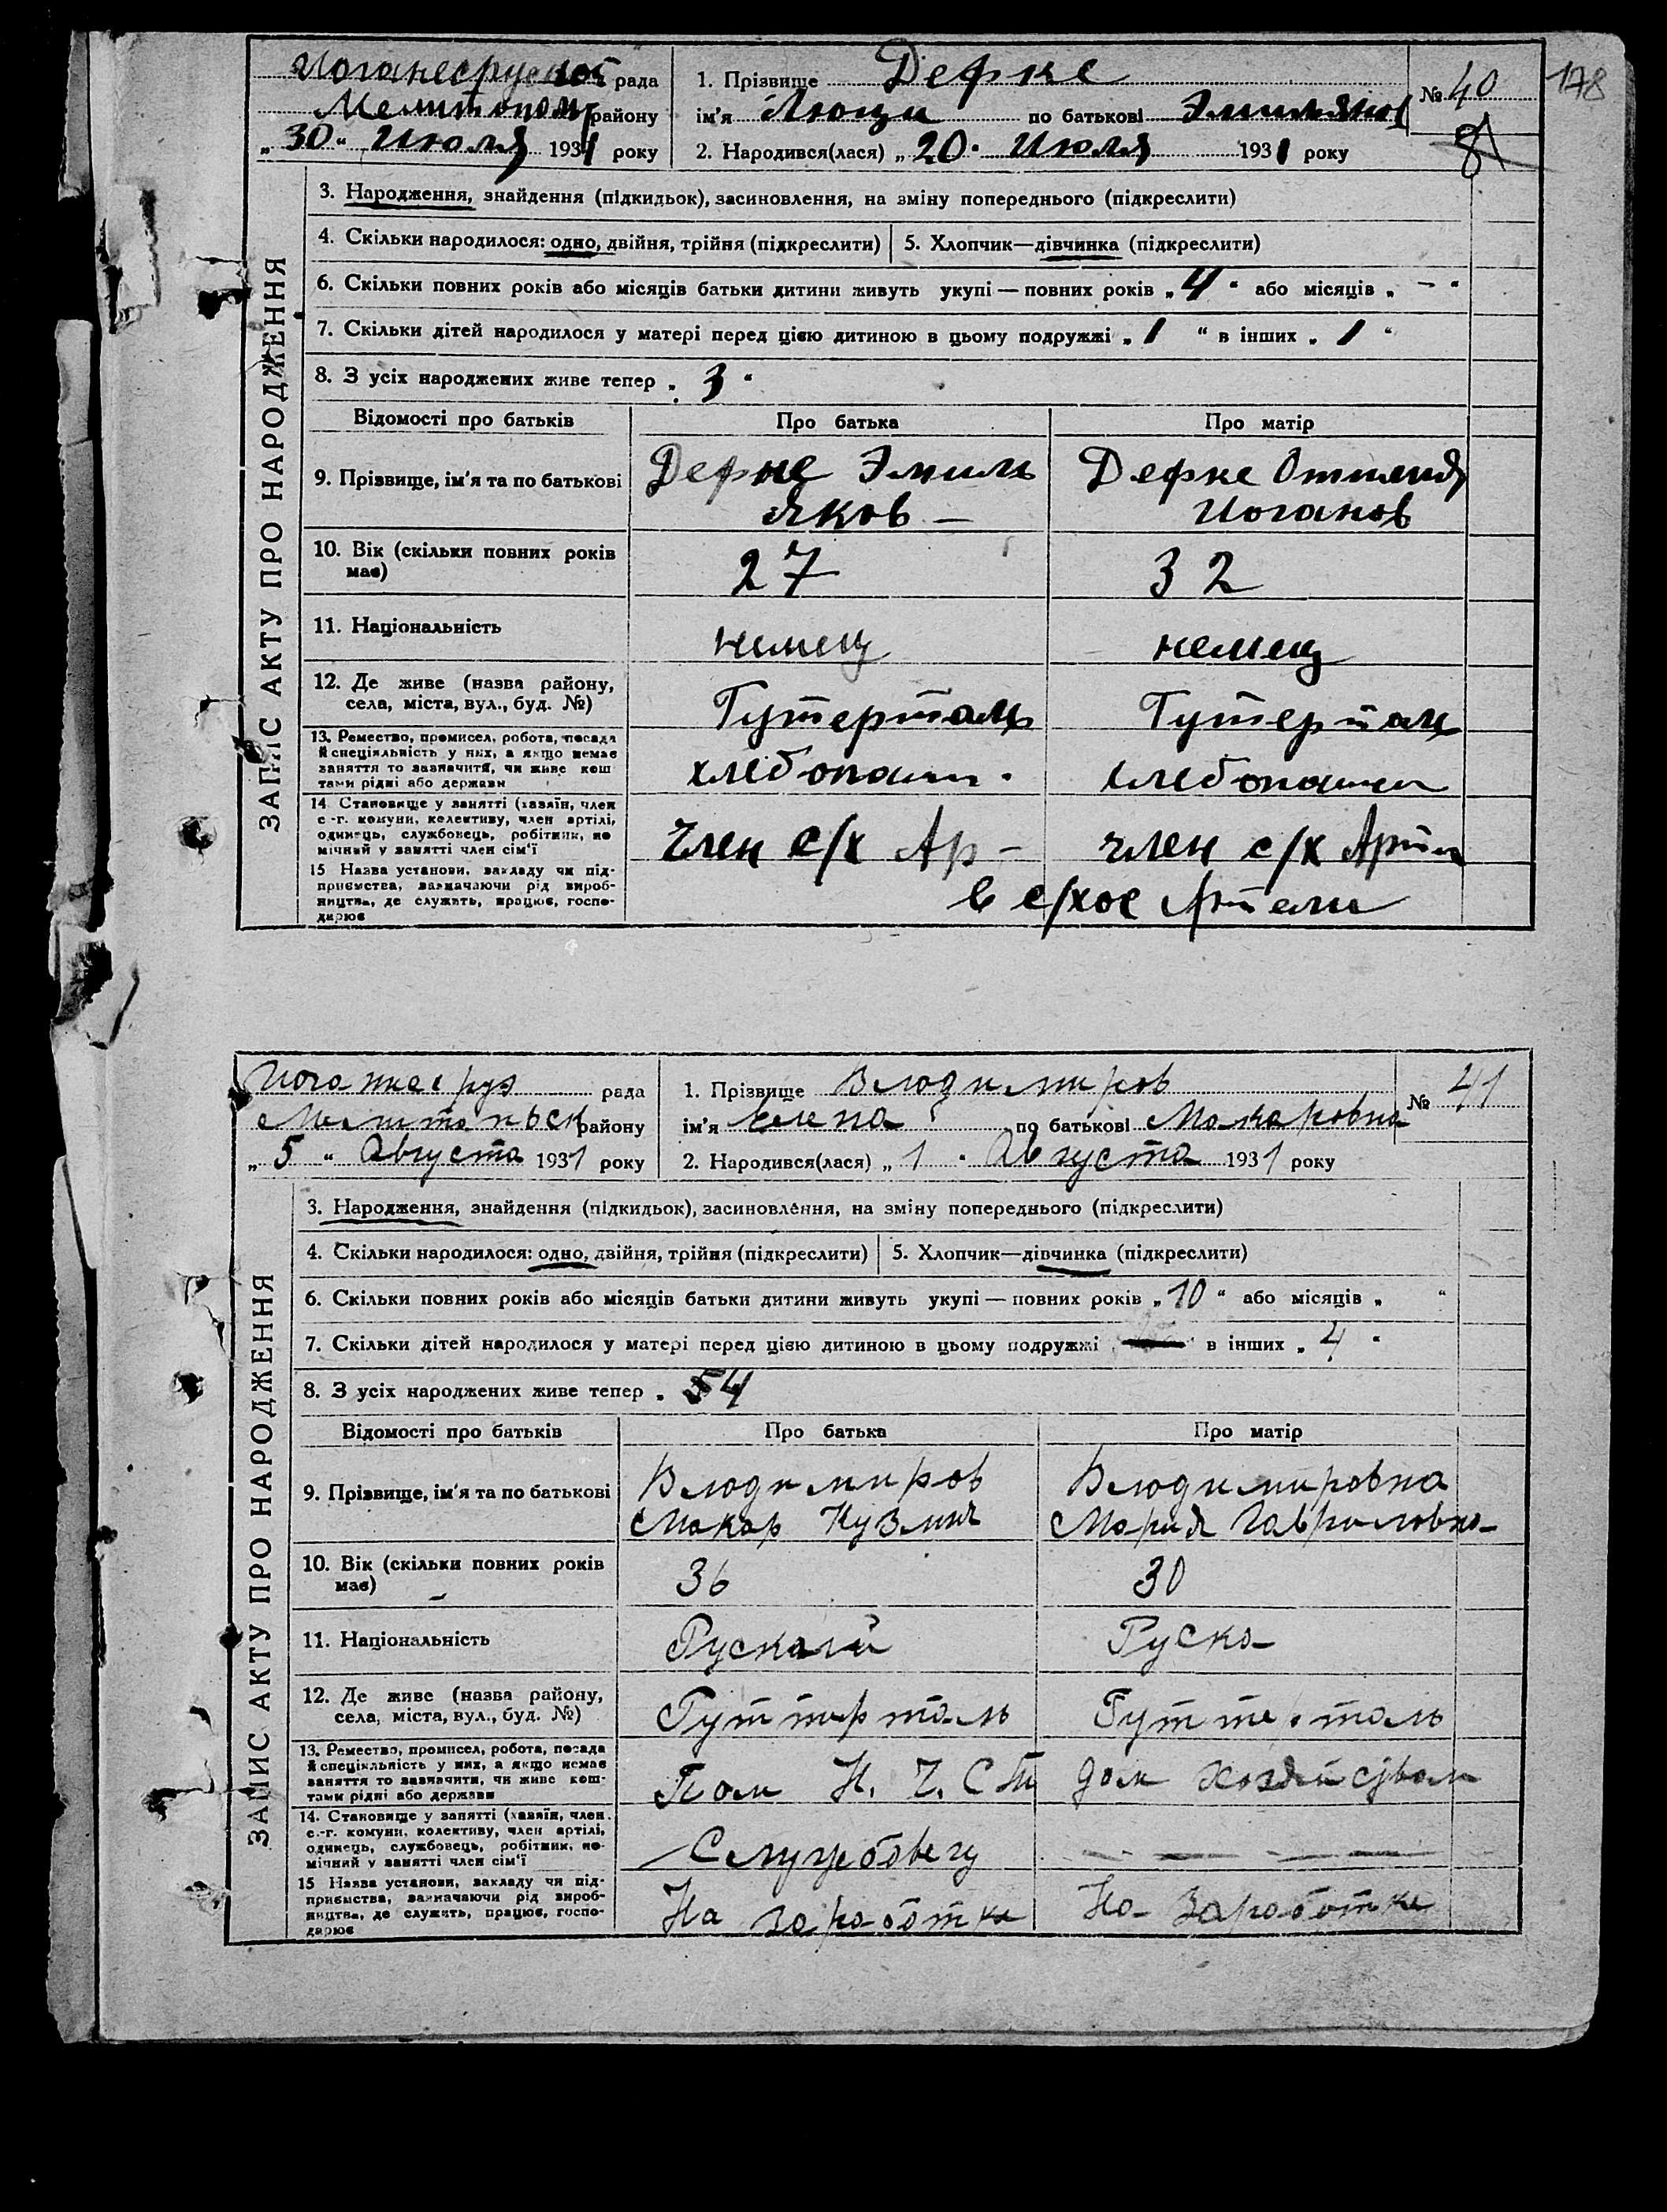 Иоганесруской рада
Мелитопол району
„30“ Июля 1931 року
1. Прізвище Дефке
ім'я Люци по батькові Эмильянов
2. Народився(лася) „20“ Июля 1931 року
№ 40
178
81
ЗАПИС АКТУ ПРО НАРОДЖЕННЯ
3. Народження, знайдення (підкидьок), засиновлення, на зміну попереднього (підкреслити)
4. Скільки народилося: одно, двійня, трійня (підкреслити)
5. Хлопчик—дівчинка (підкреслити)
6. Скільки повних років або місяців батьки дитини живуть укупі — повних років „4“ або місяців „-“
7. Скільки дітей народилося у матері перед цією дитиною в цьому подружжі „1“ в інших „1“
8. З усіх народжених живе тепер „3“
Відомості про батьків Про батька Про матір
9. Прізвище, ім'я та по батькові
Дефке Эмиль
Яков —
Дефке Оттилия
Иоганов
10. Вік (скільки повних років має) 27 32
11. Національність немец немец
12. Де живе (назва району, села, міста, вул., буд. №) Гутерталь Гутерталь
13. Ремество, промисел, робота, посада
й спеціяльність у них, а якщо немає
заняття то зазначити, чи живе кош
тами рідні або держави
хлебопаш. хлебопашец
14. Становище у занятті (хазяїн, член
с.-г. комуни, колективу, член артілі,
одинець, службовець, робітник, по
мічний у занятті член сім'ї
член с/х Ар — член с/х Арти
15 Назва установи, закладу чи під-
приємства, зазначаючи рід вироб-
ництва, де служить, працює, госпо-
дарює
в с/хое Артели
Иоганнесруэ рада
району
„5“ Августа 1931 року
1. Прізвище Влюдимиров
ім'я Елена по батькові Макаровна
2. Народився(лася) „1“ Августа 1931 року
№ 41
ЗАПИС АКТУ ПРО НАРОДЖЕННЯ
3. Народження, знайдення (підкидьок), засиновлення, на зміну попереднього (підкреслити)
4. Скільки народилося: одно, двійня, трійня (підкреслити)
5. Хлопчик—дівчинка (підкреслити)
6. Скільки повних років або місяців батьки дитини живуть укупі — повних років „10“ або місяців „ “
7. Скільки дітей народилося у матері перед цією дитиною в цьому подружжі в інших „4“
8. З усіх народжених живе тепер „54
Відомості про батьків Про батька Про матір
9. Прізвище, ім'я та по батькові
Влюдимиров
Макар Кузмич
Влюдимировна
Мария Гавриловна
10. Вік (скільки повних років має) 36 30
11. Національність Рускай Руска
12. Де живе (назва району, села, міста, вул., буд. №) Гуттерталь Гуттерталь
13. Ремество, промисел, робота, посада
й спеціяльність у них, а якщо немає
заняття то зазначити, чи живе кош-
тами рідні або держави
Пом Н. Ч. Ст дом хозяйством
14. Становище у занятті (хазяїн, член
с.-г. комуни, колективу, член артілі,
одинець, службовець, робітник, по-
мічний у занятті член сім'ї
Службовец
15 Назва установи, закладу чи під-
приємства, зазначаючи рід вироб-
ництва, де служить, працює, госпо-
дарює
На заработке На заработке